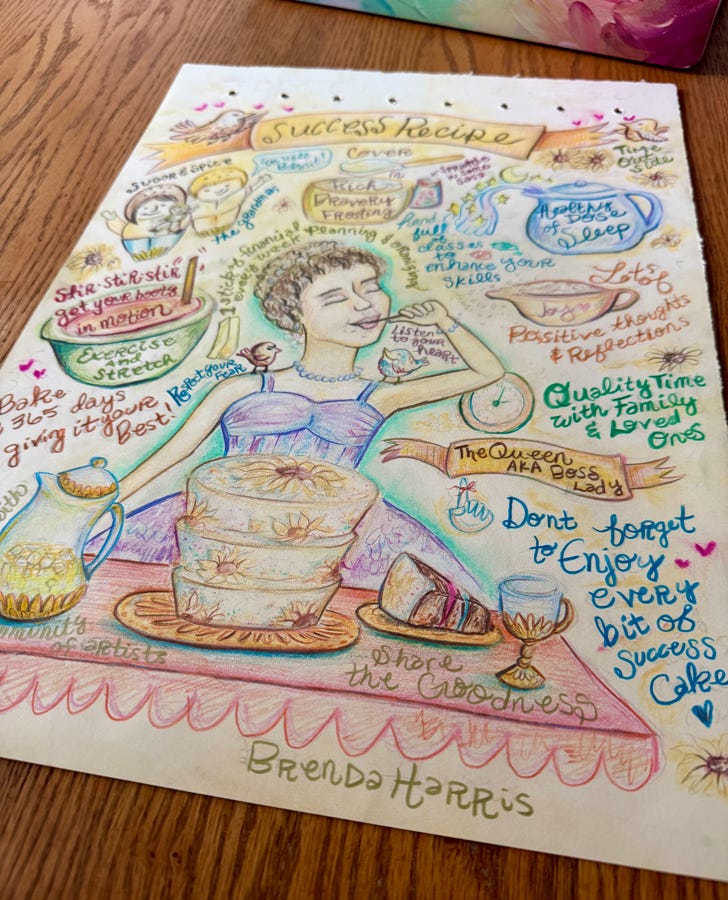 Success Recipe
Time
outside
Sugar & Spice
the grandmas
Cover
Rich
Dravery
Frosting
Sprinkle
Hand
full
of
classes
to
enhance your
skills
Healthy
Dose
of
Sleep
1 sticky financial
every week
Planning & organizing
Stir-Stir-Stir
get your boots
in motion
Exercise
and
Stretch
Joy
Lots of
Positive thoughts
& Reflections
Listen
to your
heart
Respect your
Fear
Bake
365 days
giving it your
Best!
Quality Time
with Family
& Loved
Ones
The Queen
AKA Boss
Lady
Dont forget
to Enjoy
every
bit of
Success
Cake
of artists
Share
the Goodness
Brenda Harris